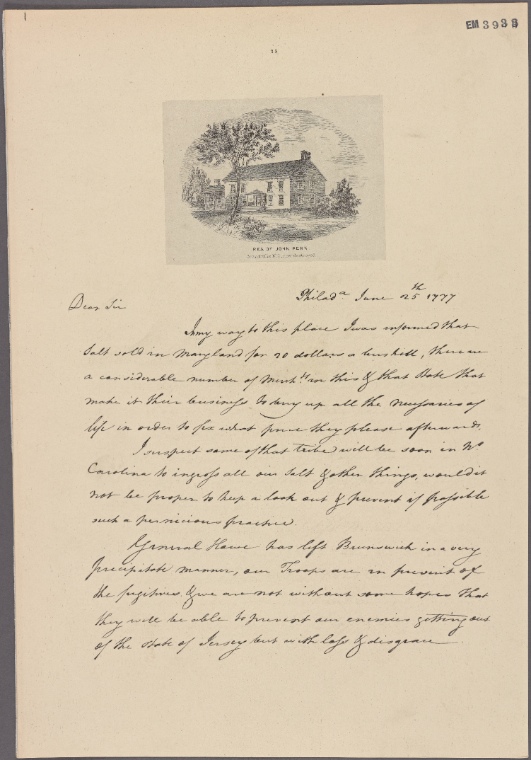 EM3933
RES. OF JOHN PENN
Philad.a June 25th 1777
Dear Sir
In my way to this place I was informed that
Salt sold in Maryland for 20 dollars a bushell, there are
a considerable number of Mercht.s in this & that State that
make it their business to buy up all the necessaries of
life in order to fix what price they please afterwards.
I suspect some of that tribe will be soon in No
Carolina to ingross all our Salt & other things, would it
not be proper to keep a look out & prevent if possible
such a pernicious practice.
General Howe has left Brunswick in a very
precipitate manner, our Troops are in pursuit of
the fugitives, & we are not without some hopes that
they will be able to prevent our enemies getting out
of the State of Jersey but with loss & disgrace